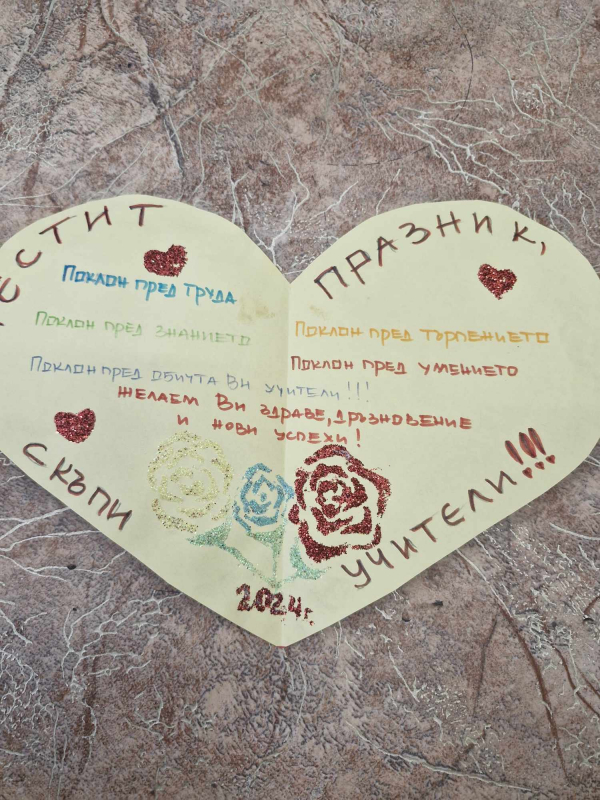 ЧЕСТИТ ПРАЗНИК,
ПОКЛОН ПРЕД ТРУДА
ПОКЛОН ПРЕД ЗНАНИЕТО
ПОКЛОН ПРЕД ТЪРПЕНИЕТО
ПОКЛОН ПРЕД УМЕНИЕТО
ПОКЛОН ПРЕД ОБИЧТА ВИ УЧИТЕЛИ!!!
ЖЕЛАЕМ ВИ ЗДРАВЕ, ДРЪЗНОВЕНИЕ
И НОВИ УСПЕХИ!
СКЪПИ УЧИТЕЛИ!!!
2024г.